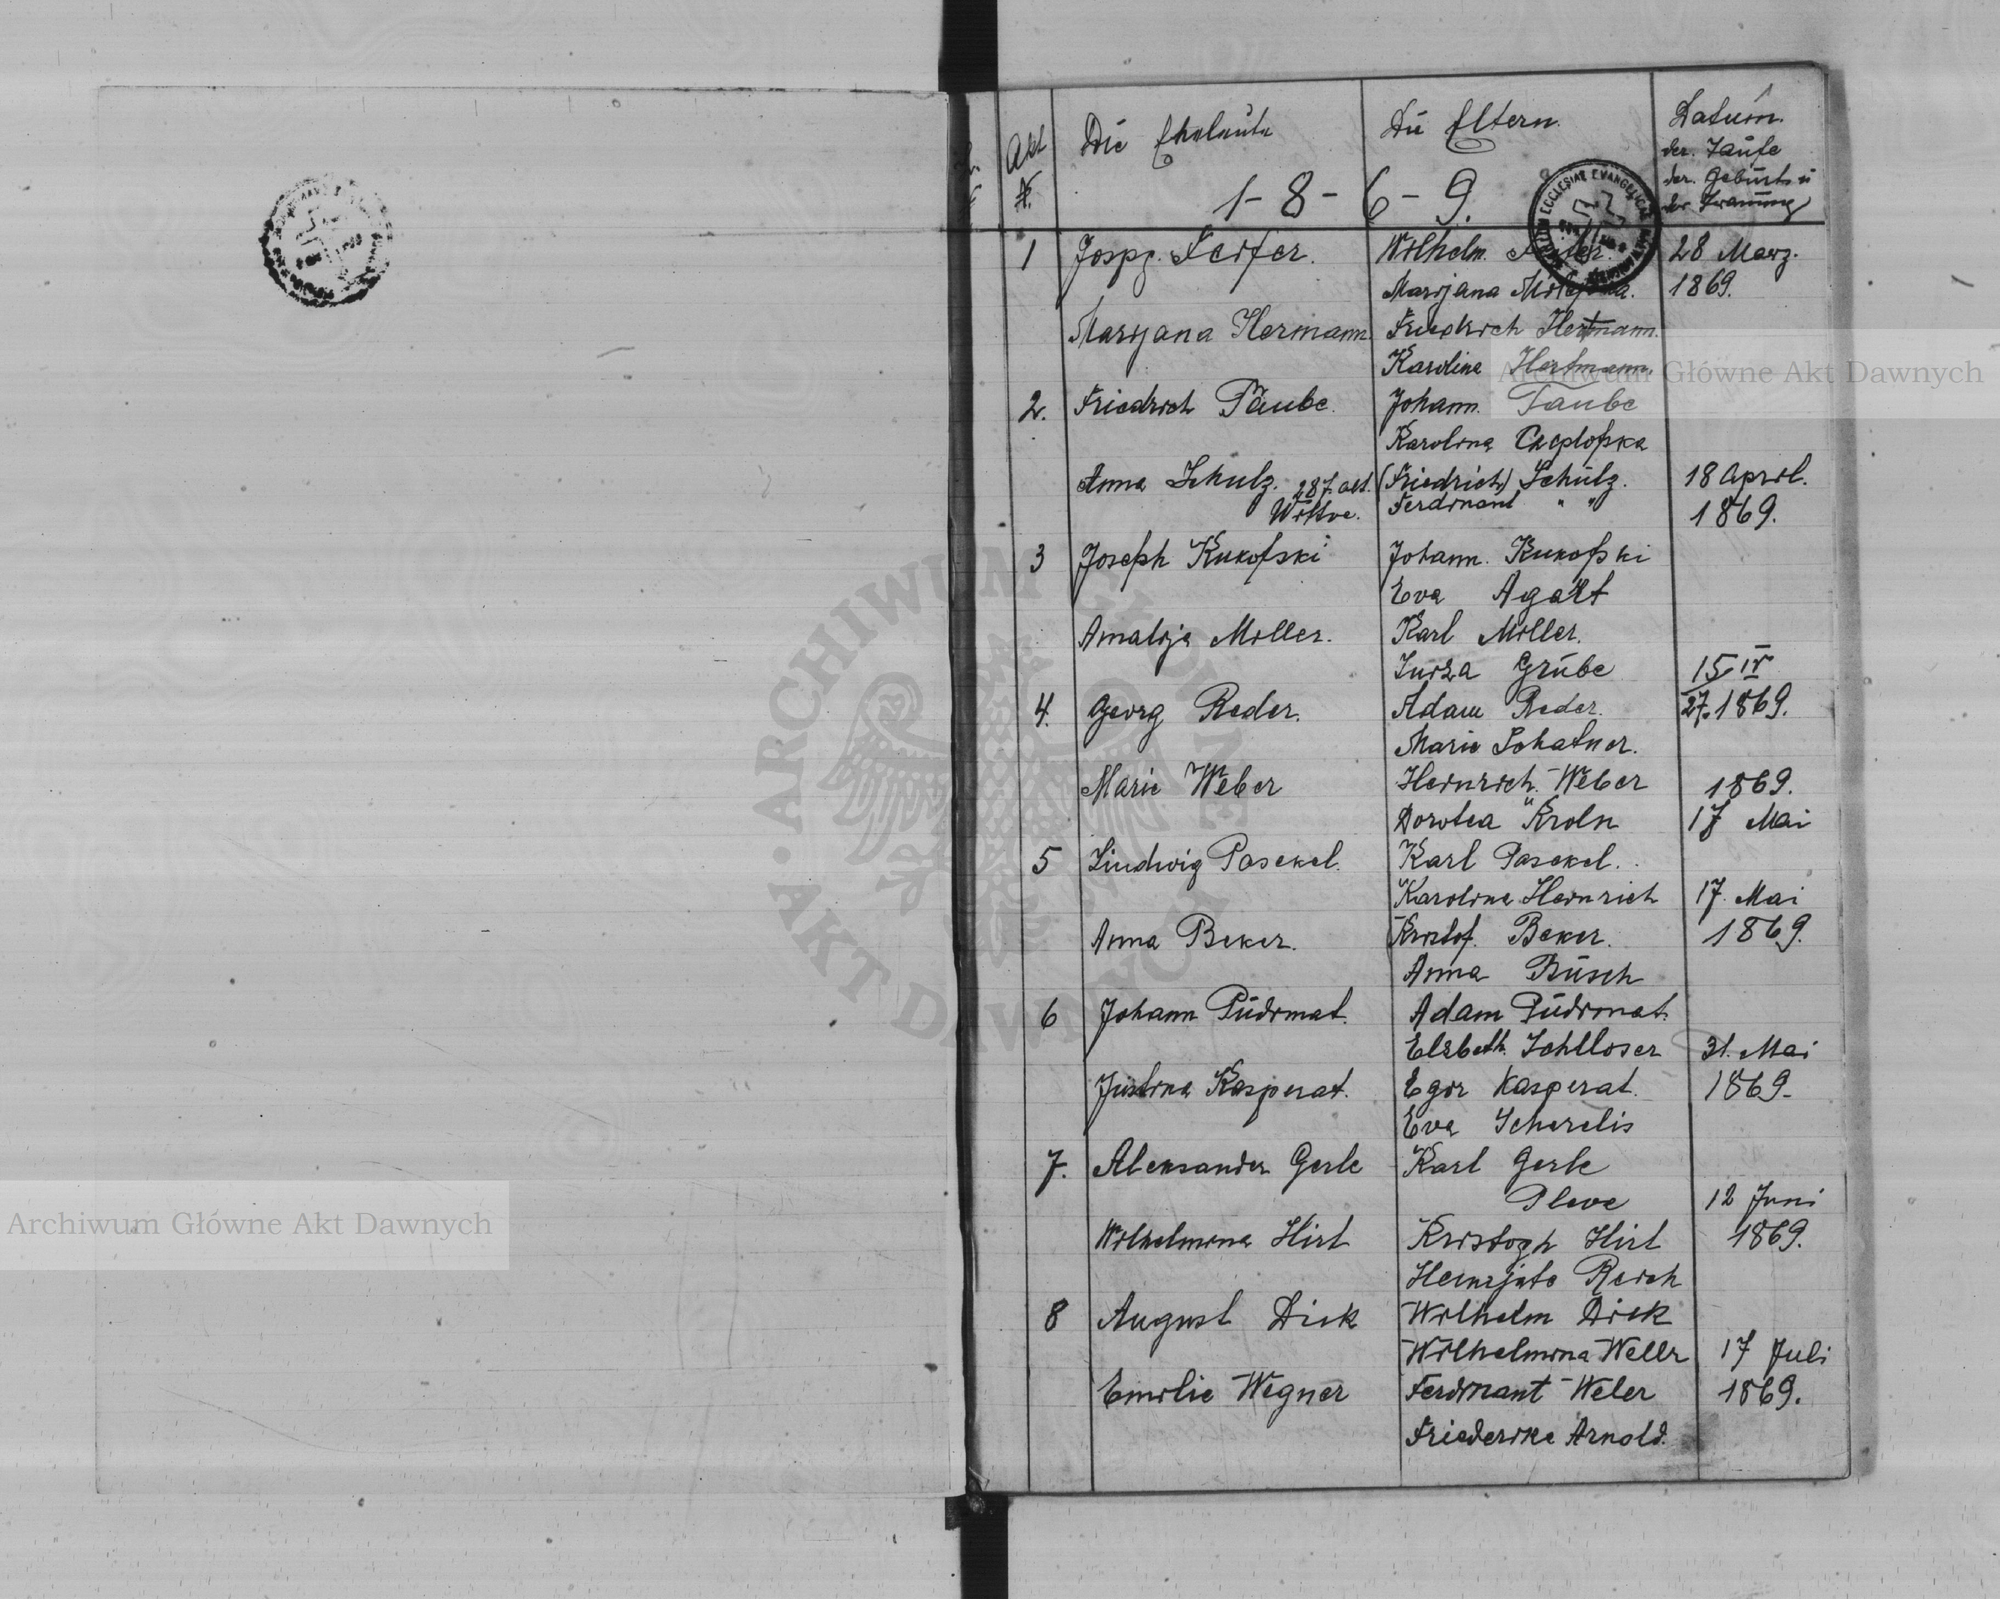 Akt
№.
Die Eheleute
Die Eltern.
Datum.
der. Taufe
der. Geburts u
der Trauung
1-8-6-9.
1 Feifer. Wilhelm. 28 Merz.
Marijana 1869.
Maryana Hermann. Friedrich Hertmann.
Karolina Hertmann.
2. Friedrich Taube. Johann. Taube
Karolina
Anna Schulz. 28 J. alt. (Friedrich) Schulz. 18 April.
Wittve. Ferdinant " " 1869.
3 Joseph Kukofski Johann. Kukofski
Eva Agatt
Amalija Miller. Karl Miller.
Luiza Grube 15 IV
4. Georg Reder. Adam Reder. 27. 1869.
Marie Schatner.
Marie Weber Heinrich Weber 1869.
Dorotea Kroln 17 Mai
5 Liudwig Pasekel. Karl Pasekel.
Karolina Heinrich 17. Mai
Anna Beker. Kristof. Beker. 1869.
Anna Busch
6 Johann Pudimat. Adam Pudimat.
Elsbeth. Schlloser 31. Mai
Justina Kasperat. Egor Kasperat. 1869-
Eva Scherelis
7. Aleksander Gerle Karl Gerle
Pleve 12 Juni
Wilhelmina Hirt Kristoph Hirt 1869.
Reich
8 August Dick Wilhelm Dick
Wilhelmina Wellr 17 Juli
Emilie Wegner Ferdinant Weler 1869.
Friederike Arnold.
ECCLESIAE EVANGELICAE
Archiwum Główne Akt Dawnych
Archiwum Główne Akt Dawnych
ARCHIWUM GŁÓWNE • AKT DAWNYCH •